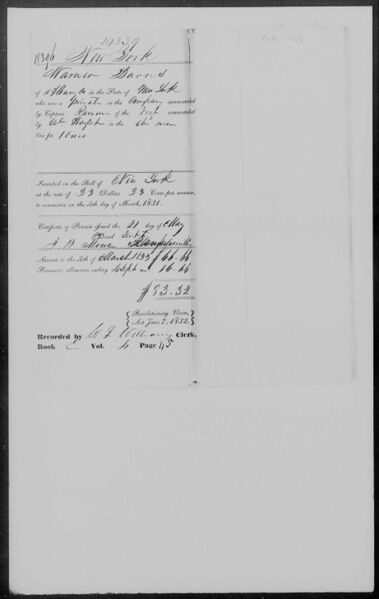 18396 New York
Warner Barns
of Albany Co in the State of New York
who was a Private in the Company commanded
by Captain Ransom of the Regt commanded
by Col in the
line for 10 mos
Inscribed on the Roll of New York
at the rate of 33 Dollars 33 Cents per annum,
to commence on the 4th day of March, 1831.
Certificate of Pension issued the 21 day of May
J B Moore
Arrears to the 4th of March 1833 $ 66.66
Semi-anl. allowance ending 4 Sept 16.66
$ 83.32
Revolutionary Claim,
Act June 7, 1832.
Recorded by Clerk,
Book C Vol. 4 Page 45